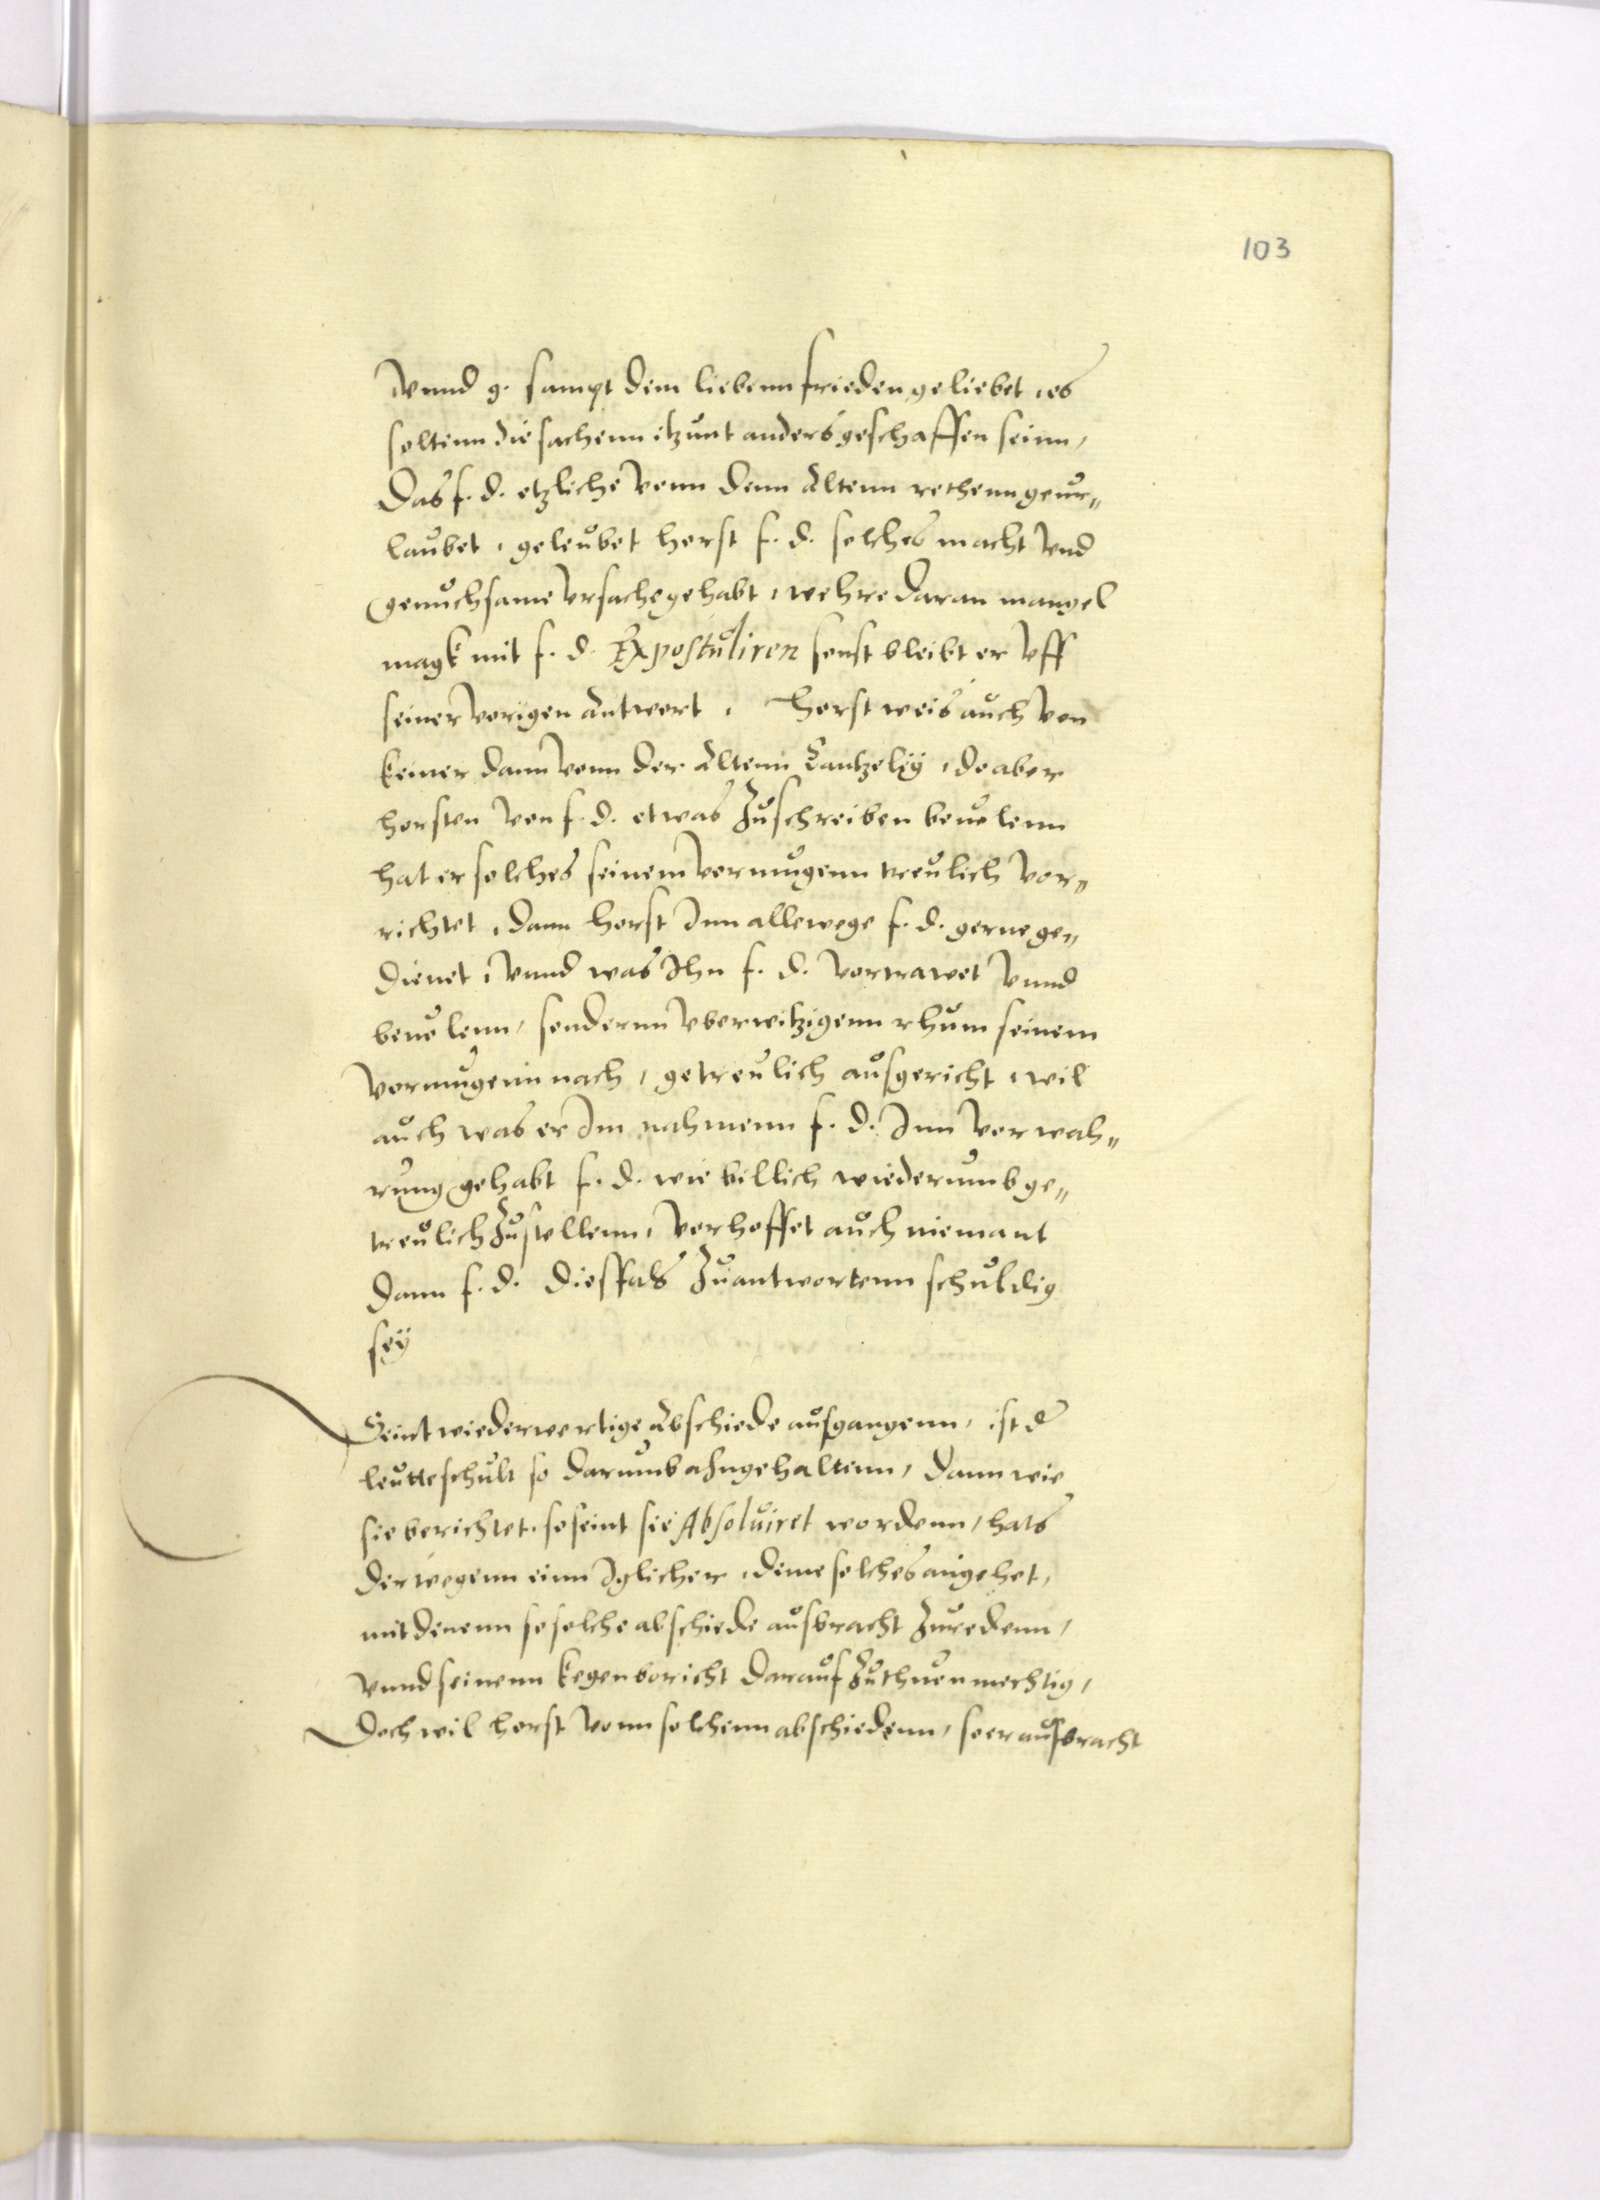 103
vnnd g. sampt dem liebenn frieden geliebet, es
soltenn die sachenn itzunt anders geschaffen seinn,
Das f. d. etzliche vonn denn Altenn rethenn geur„
laubet, geleubet Horst f. d. solches macht vnd
genuchsame vrsache gehabt, wehre daran mangel
magk mit f. d. Expostuliren sonst bleibt er vff
seiner vorigen Antwort, Horst weis auch von
keiner dann vonn der Altenn Cantzeley, do aber
Horsten von f. d. etwas zuschreiben beuolenn
hat er solches seinem vermugenn treulich vor„
richtet, dann Horst Inn allewege f. d. gerne ge„
dienet, vnnd was Ihn f. d. vortrawet vnnd
beuolenn, sondernn vberwitzigenn rhum seinem
vormugenn nach, getreulich ausgericht, wil
auch was er Im nahmenn f. d. Inn verwah„
rung gehabt f. d. wie billich wiederumb ge„
treulich zustellenn, verhoffet auch niemant
dann f. d. diessfals zuantwortenn schuldig
sey
Seint wiederwertige Abschiede ausgangenn, ist d
leutte schult so darumb angehaltenn, dann wie
sie berichtet, so seint sie Absoluiret wordenn, hats
derwegenn einn Iglicher, deme solches angehet,
mit denenn so solche abschiede ausbracht zuredenn,
vnnd seinenn kegenbericht darauf zuthuen mechtig,
Doch wil Horst vonn solchenn abschiedenn, so er ausbracht